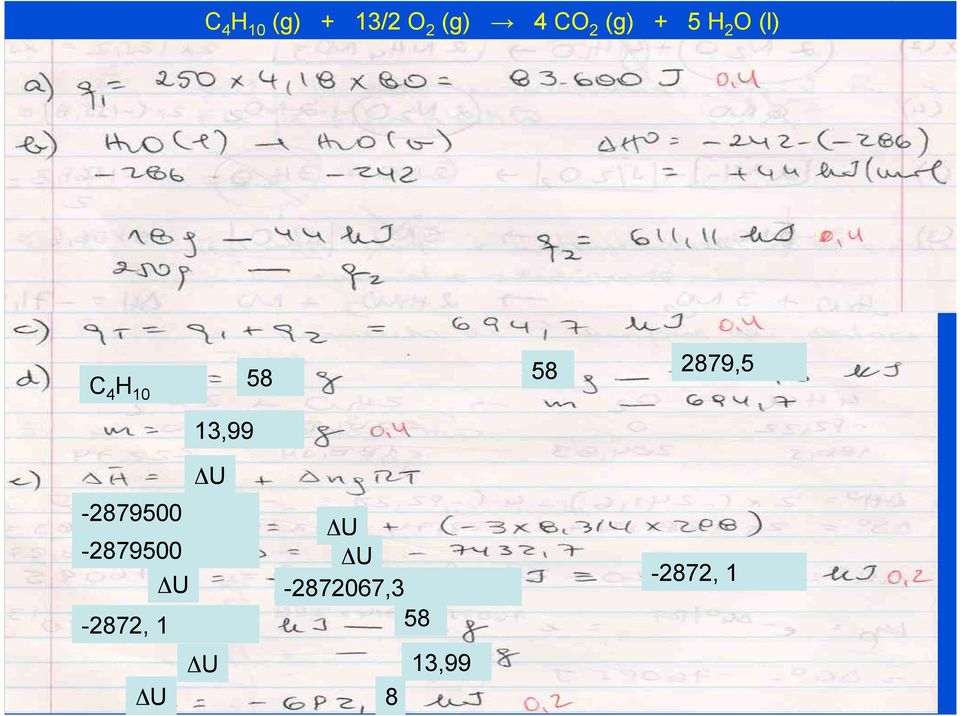 C4H10 (g) + 13/2 O2 (g) → 4 CO2 (g) + 5 H2O (l)
a) q1 = 250 x 4,18 x 80 = 83.600 J 0,4
b) H2O(l) → H2O(v) ΔHº = -242-(-286)
-286 -242 = +44 kJ/mol
18g — 44 kJ q2 = 611,11 kJ 0,4
250g — q2
c) qT = q1 + q2 = 694,7 kJ 0,4
d) C4H10 = 58 g 58 g — 2879,5 kJ
m — 694,7
m = 13,99 g 0,4
e) ΔH = ΔU + ΔngRT
-2879500 = ΔU + (-3x8,314x298)
-2879500 = ΔU - 7432,7
ΔU = -2872067,3 J ≡ -2872, 1 kJ 0,2
-2872, 1 kJ — 58 g
ΔU — 13,99 g
ΔU = -692, 8 kJ 0,2